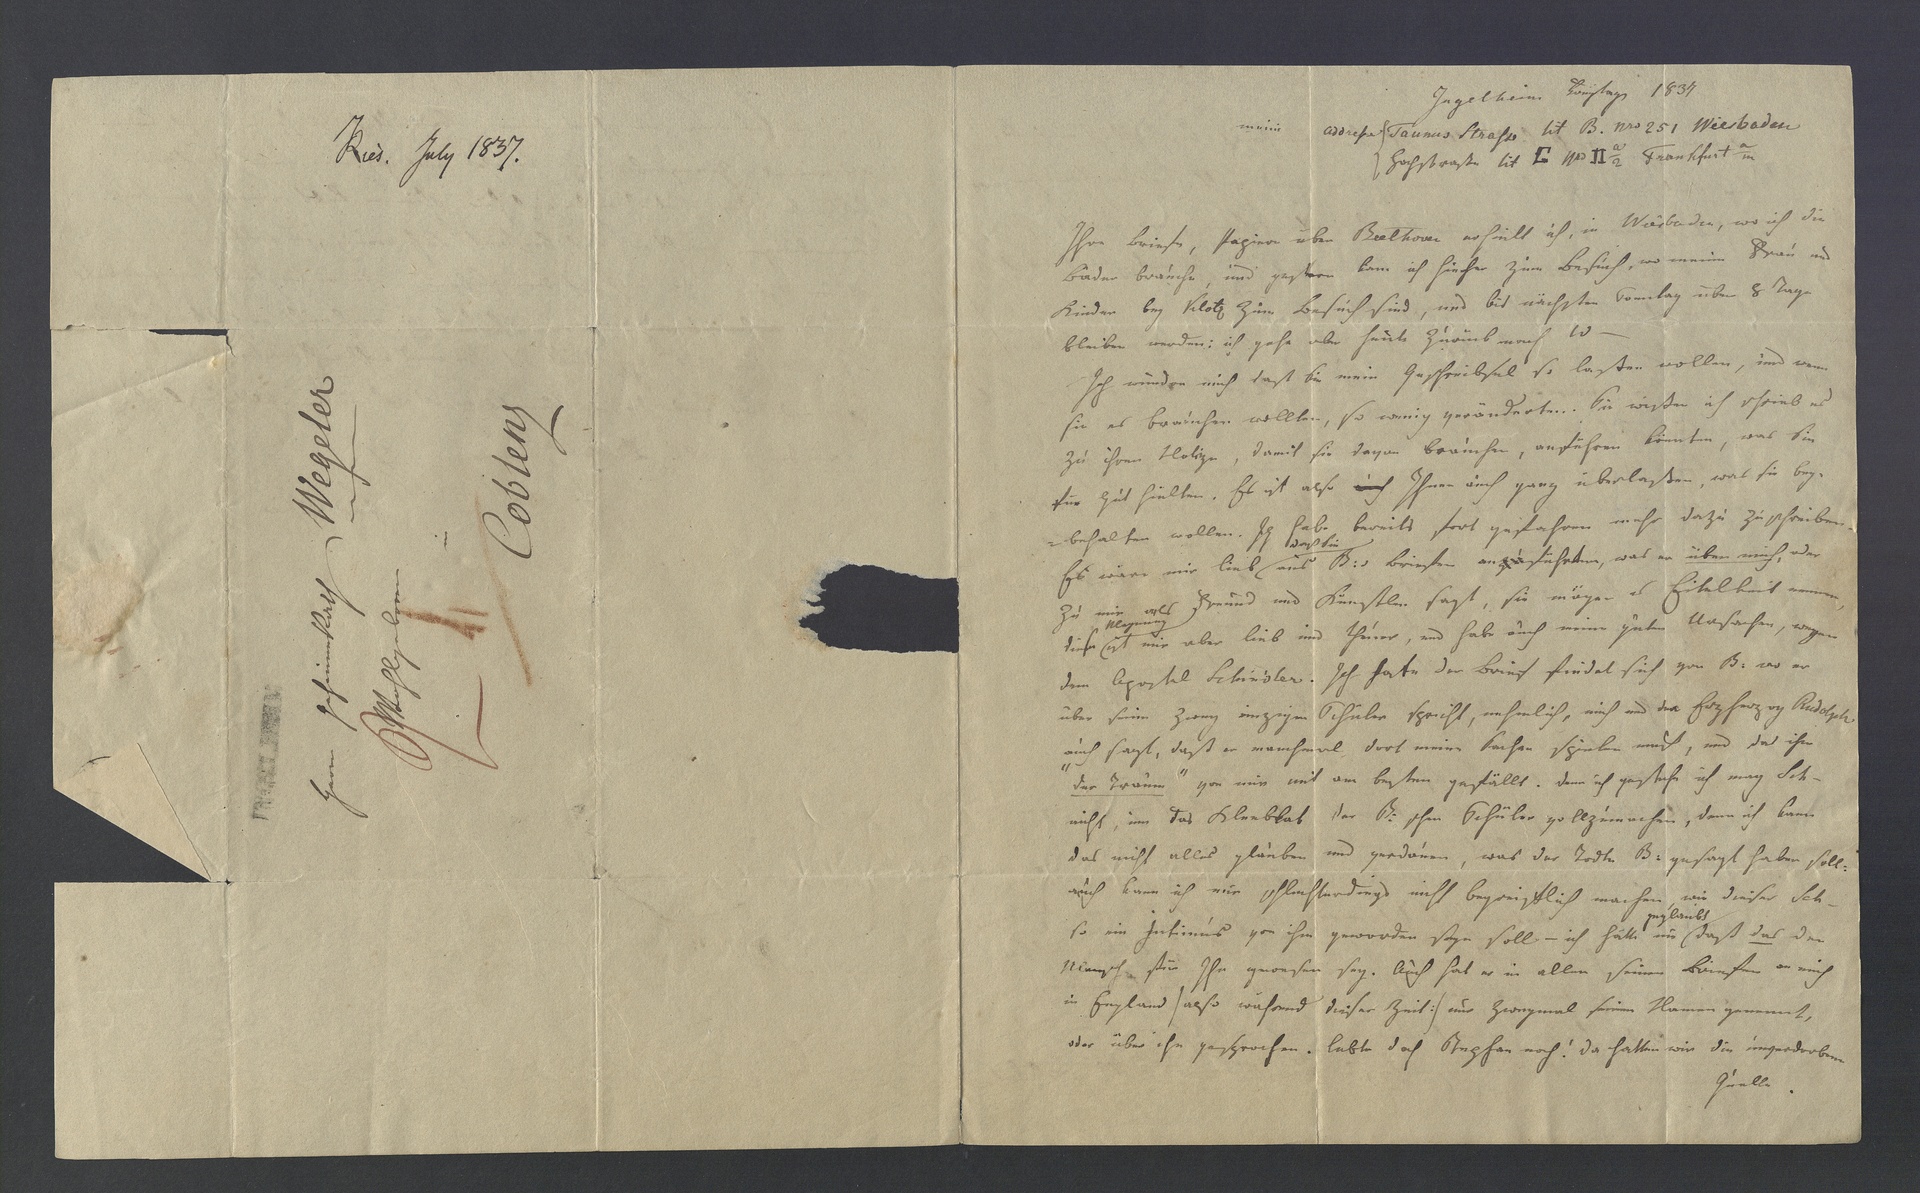 Ries. July 1837.
Herrn Geheimrath Wegeler
Wohlgeboren
in
Coblenz
Ingelheim Dienstag 1837
meine addresse Taunus Strasse lit B. nro 251 Wiesbaden
Hochstraße lit E No II a/2 Frankfurt a/m
Ihre Briefe, Papiere über Beethoven erhielt ich, in Wiesbaden, wo ich die
Bäder brauche, und gestern kam ich hieher zum Besuch, wo meine Frau und
Kinder bey Klotz zum Besuch sind, und bis nächsten Sonntag über 8 Tage
bleiben werden: ich gehe aber heute zurück nach W —
Ich wundre mich dast Sie mein Geschreibsel so laßen wollen, und wenn
sie es brauchen wollten, so wenig veränderten. Sie wißen ich schrieb es
zu ihrer Notize, damit sie davon brauchen, anführen könnten, was Sie
für gut hielten. Es ist also Ihnen auch ganz überlaßen, was sie bey-
=behalten wollen. Ich habe bereits fort gefahren mehr dazu zu schreiben.
Es wäre mir lieb daß sie aus B:s Briefen anführten, was er über mich, oder
zu mir als Freund und Künstler sagt, sie mögen es Eitelkeit nennen,
diese Meynung ist mir aber lieb und theuer, und habe auch meine guten Ursachen, wegen
dem Apostel Schindler. Ich hoffe der Brief findet sich von B: wo er
über seine zwey einzigen Schüler spricht, nehmlich, mich und der Erzherzog Rudolph
auch sagt, daß er manchmal dort meine Sachen spielen muß, und das ihm
"der Traum" von mir mit am besten gefällt. denn ich gestehe ich mag Sch-
nicht, um das Kleeblat der B:schen Schüler vollzumachen, denn ich kann
das nicht alles glauben und verdauen, was der Todte B: gesagt haben soll:
auch kann ich mir schlechterdings nicht begreiflich machen, wie dieser Sch-
so ein Intimus von ihm geworden seyn soll — ich hätte nie geglaubt daß das der
Mensch für Ihn gewesen sey. Auch hat er in allen seinen Briefen an mich
in England (also während dieser Zeit:) nur zweymal seinen Namen genennt,
oder über ihn gesprochen. lebte doch Stephan noch! da hatten wir die unverdorbene
Quelle.